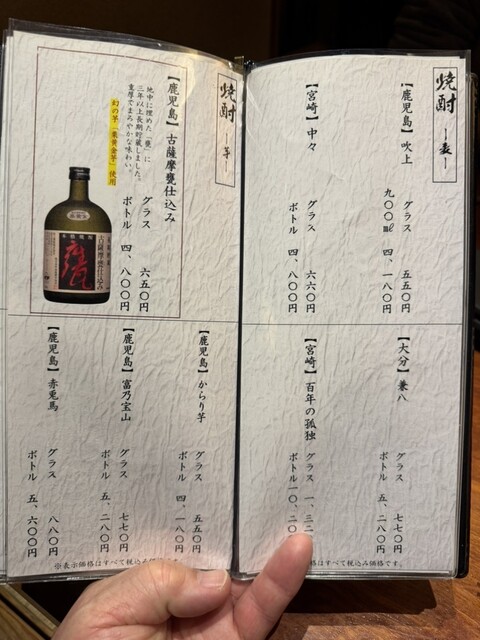 焼酎 ―麦―
【鹿児島】吹上
グラス 五五〇円
九〇〇㎖ 四、一八〇円
【宮崎】中々
グラス 六六〇円
ボトル 四、八〇〇円
【大分】兼八
グラス 七七〇円
ボトル 五、二八〇円
【宮崎】百年の孤独
グラス 一、三二
ボトル 一〇、二〇
格はすべて税込み価格です。
焼酎 ―芋―
【鹿児島】古薩摩甕仕込み
地中に埋めた「甕」に
三年以上長期貯蔵しました。
重厚でまろやかな味わい。
幻の芋「栗黄金芋」使用
グラス 六五〇円
ボトル 四、八〇〇円
本格焼酎
古薩摩甕仕込み
甕
【鹿児島】からり芋
グラス 五五〇円
ボトル 四、一八〇円
【鹿児島】富乃宝山
グラス 七七〇円
ボトル 五、二八〇円
【鹿児島】赤兎馬
グラス 八八〇円
ボトル 五、六〇〇円
※表示価格はすべて税込み価格です。